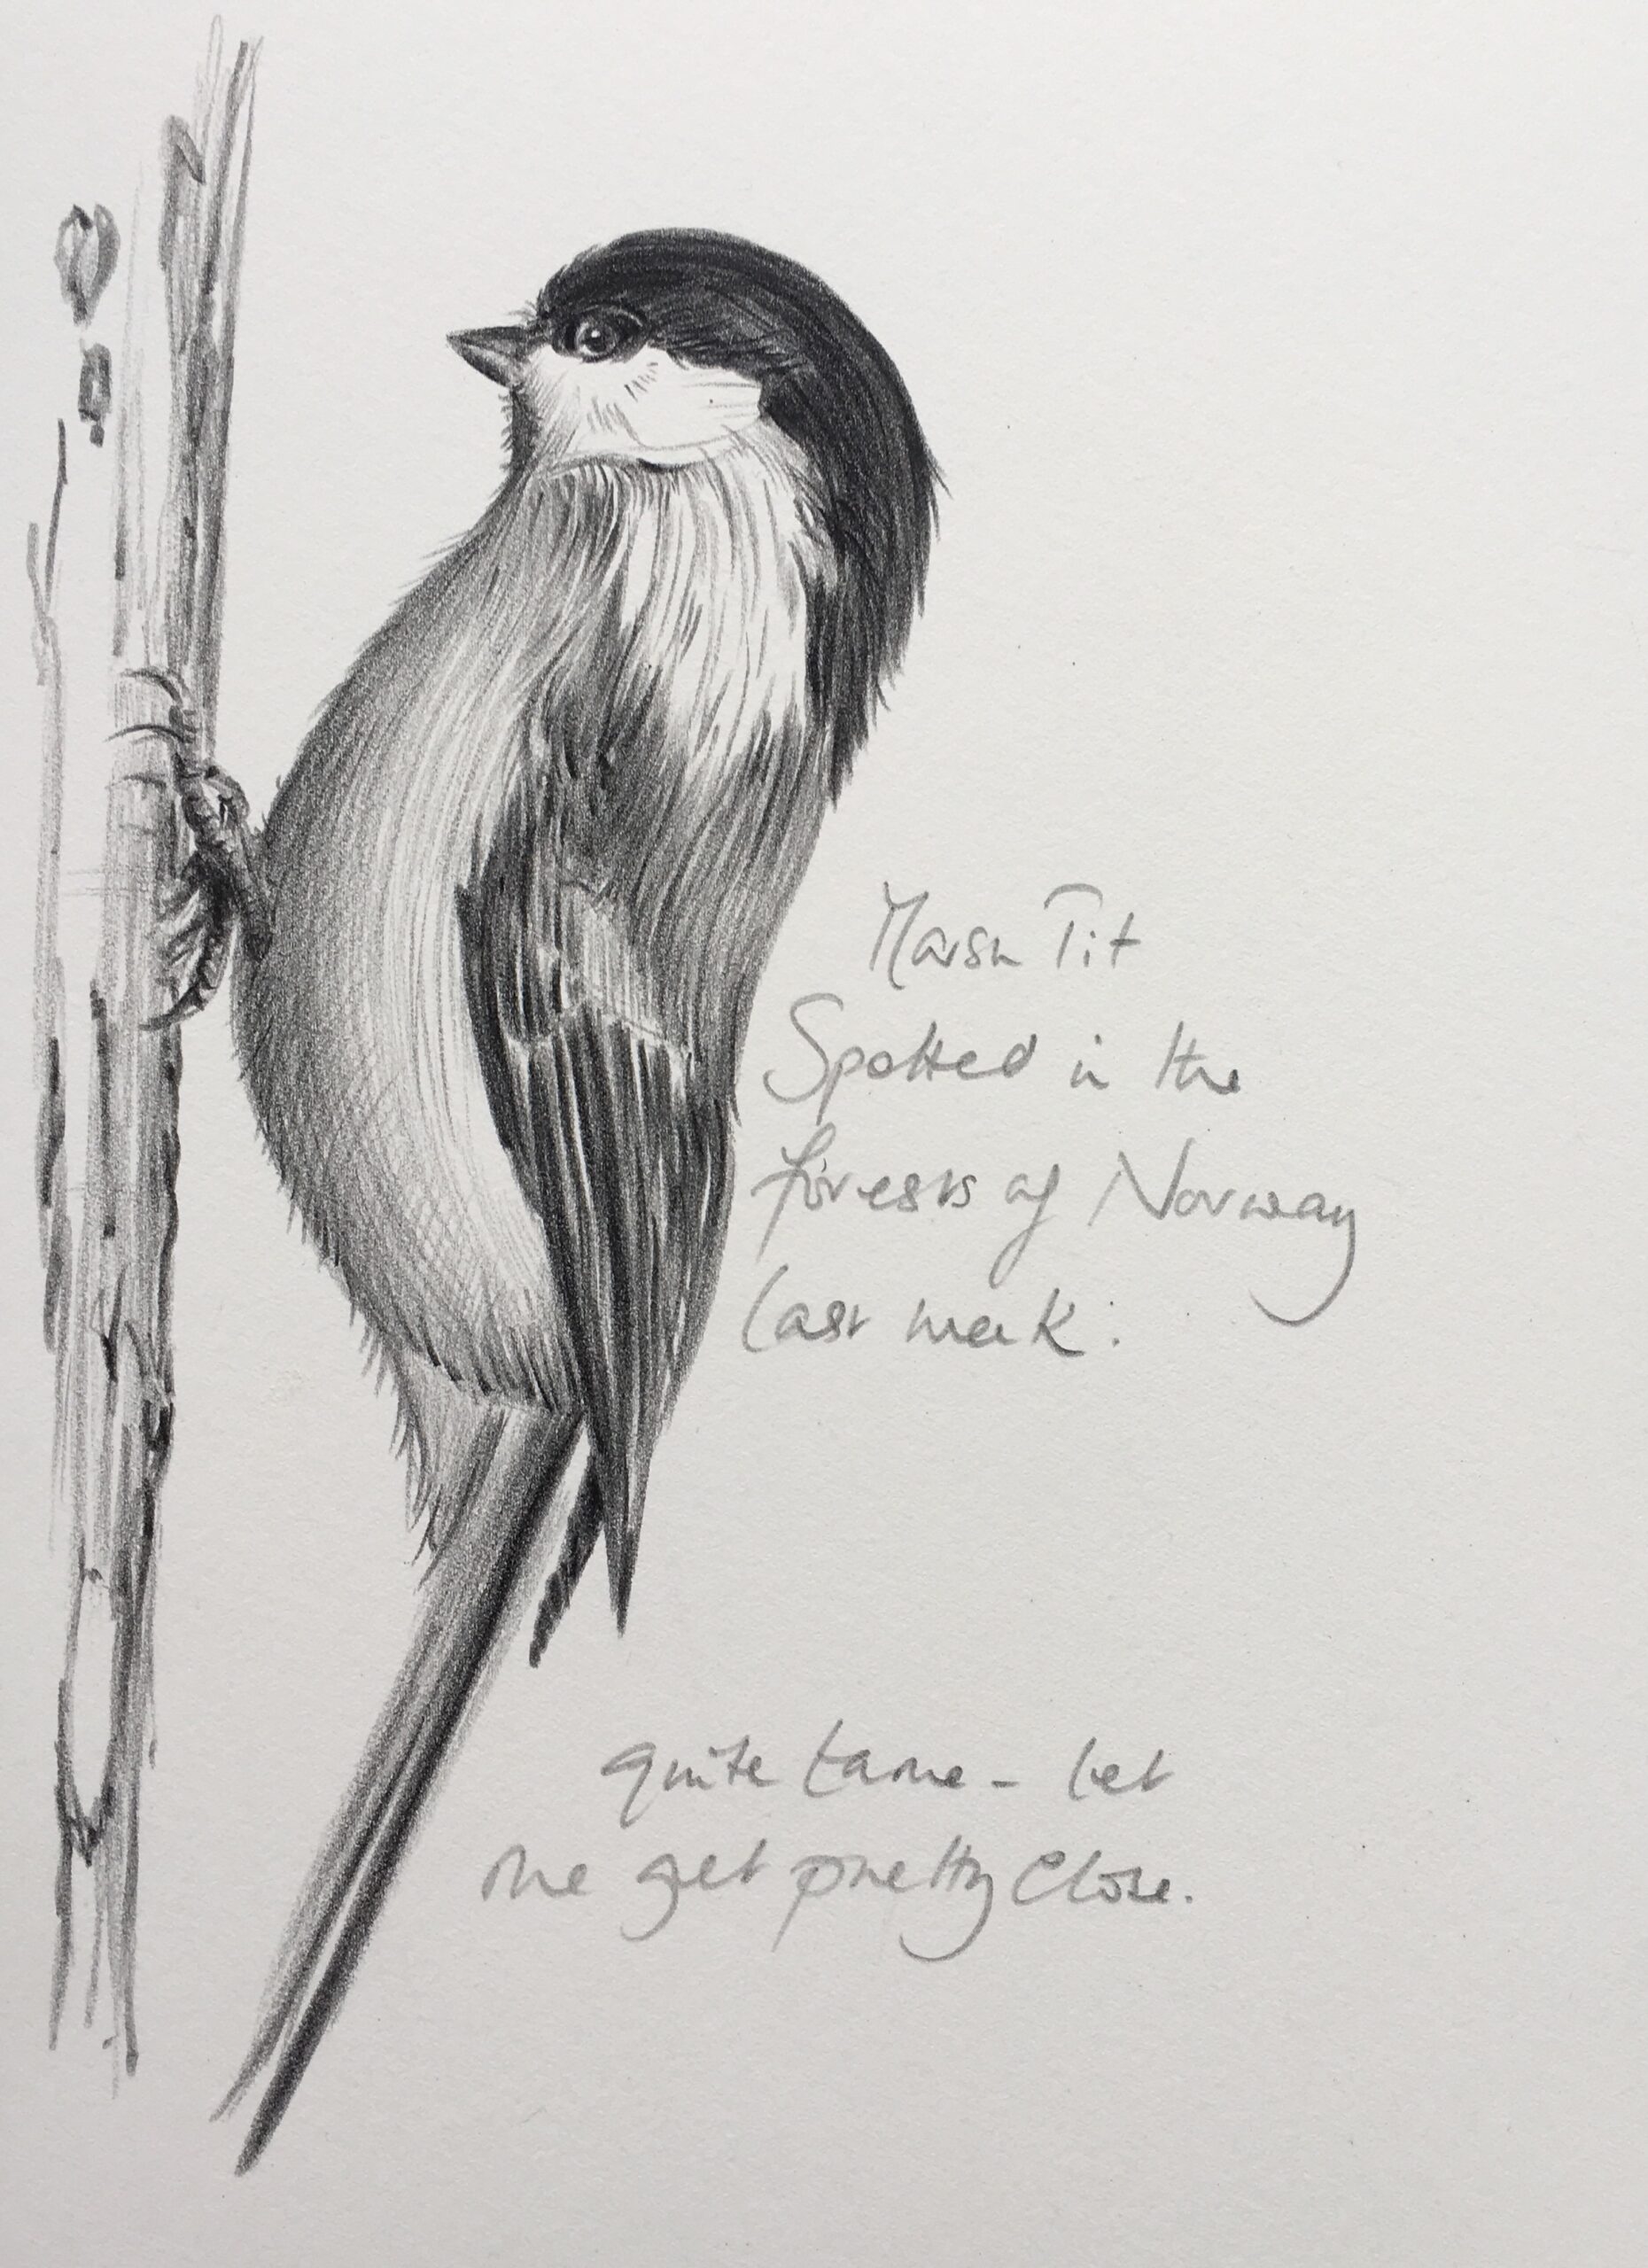 Marsh Tit
Spotted in the
forests of Norway
last week.
quite tame - let
me get pretty close.